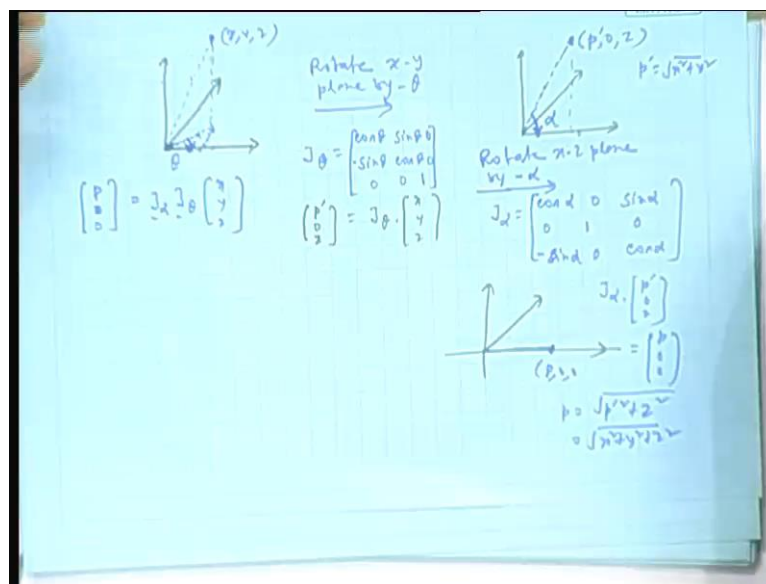 (x, y, z)
θ
[p 0 0] = J_α J_θ [x y z]
Rotate x-y
plane by -θ
J_θ = [cosθ sinθ 0
-sinθ cosθ 0
0 0 1]
[p' 0 z] = J_θ . [x y z]
(p', 0, z)
p' = √x²+y²
α
Rotate x-z plane
by -α
J_α = [cosα 0 sinα
0 1 0
-sinα 0 cosα]
J_α . [p' 0 z]
= [p 0 0]
(p, 0, 0
p = √p'²+z²
= √x²+y²+z²